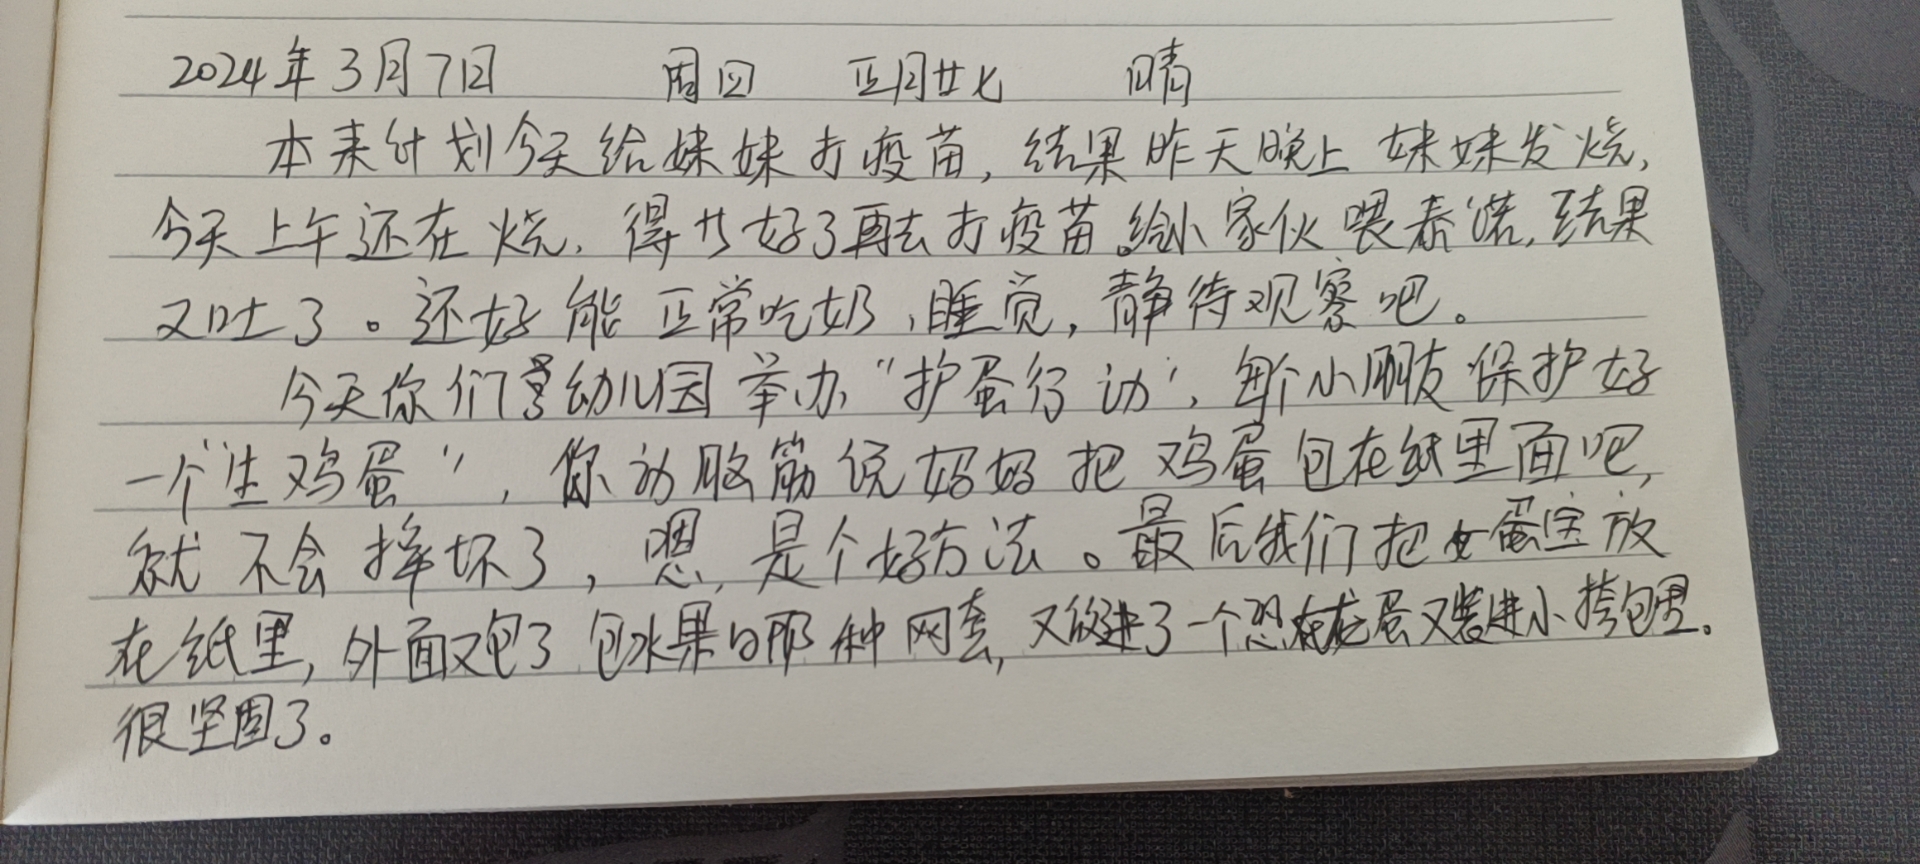 2024年3月7日 周四 正月廿七 晴
本来计划今天给妹妹打疫苗，结果昨天晚上妹妹发烧，
今天上午还在烧，得等好了再去打疫苗。给小家伙喂泰诺，结果
又吐了。还好能正常吃奶、睡觉，静待观察吧。
今天你们幼儿园举办“护蛋行动”，每个小朋友保护好
一个“生鸡蛋”，你动脑筋说妈妈把鸡蛋包在纸里面吧，
就不会摔坏了，嗯，是个好方法。最后我们把蛋宝放
在纸里，外面又包了包水果的那种网套，又放进了一个恐龙蛋又装进小挎包里。
很坚固了。